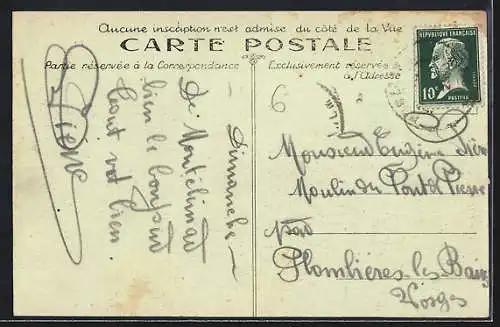 Aucune inscription n'est admise du côté de la Vue
CARTE POSTALE
Partie réservée à la Correspondance
Exclusivement réservée à l'Adresse
REPUBLIQUE FRANÇAISE
10c
POSTES
6
Dimanche
De Montélimar
bien le bonjour
tout va bien.
Pierre
Monsieur Eugène
Moulin du Pont Pierre
par
Plombières-les-Bains
Vosges